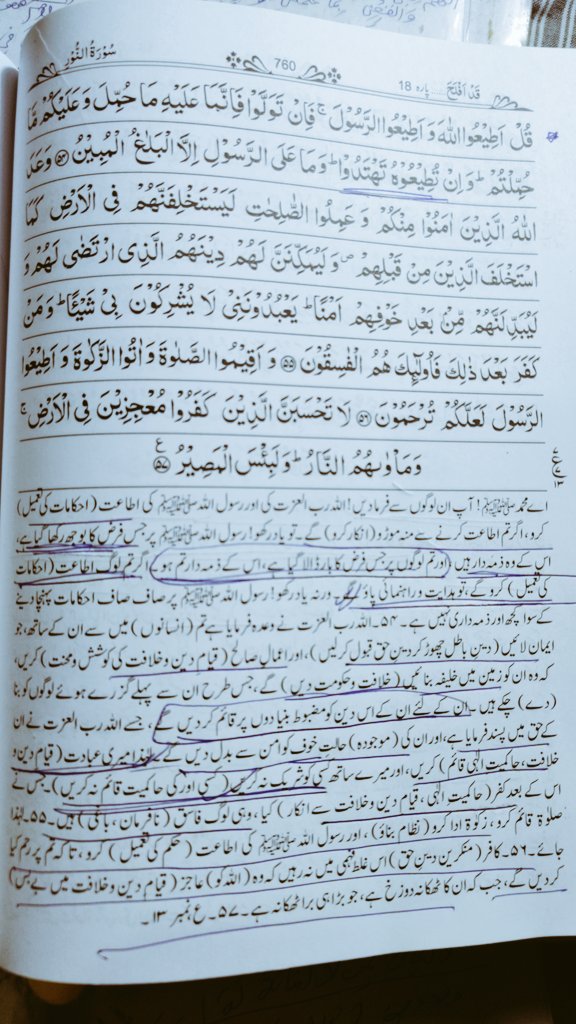 سُوْرَةُ النُّوْر
760
قَدْ اَفْلَحَ ..... پارہ 18
قُلْ اَطِيْعُوا اللّٰهَ وَ اَطِيْعُوا الرَّسُوْلَ ۚ فَاِنْ تَوَلَّوْا فَاِنَّمَا عَلَيْهِ مَا حُمِّلَ وَ عَلَيْكُمْ مَّا
حُمِّلْتُمْ ؕ وَ اِنْ تُطِيْعُوْهُ تَهْتَدُوْا ؕ وَ مَا عَلَى الرَّسُوْلِ اِلَّا الْبَلٰغُ الْمُبِيْنُ ﴿۵۴﴾ وَعَدَ
اللّٰهُ الَّذِيْنَ اٰمَنُوْا مِنْكُمْ وَ عَمِلُوا الصّٰلِحٰتِ لَيَسْتَخْلِفَنَّهُمْ فِي الْاَرْضِ كَمَا
اسْتَخْلَفَ الَّذِيْنَ مِنْ قَبْلِهِمْ ۪ وَ لَيُمَكِّنَنَّ لَهُمْ دِيْنَهُمُ الَّذِي ارْتَضٰى لَهُمْ وَ
لَيُبَدِّلَنَّهُمْ مِّنْۢ بَعْدِ خَوْفِهِمْ اَمْنًا ؕ يَعْبُدُوْنَنِيْ لَا يُشْرِكُوْنَ بِيْ شَيْـًٔا ؕ وَ مَنْ
كَفَرَ بَعْدَ ذٰلِكَ فَاُولٰٓئِكَ هُمُ الْفٰسِقُوْنَ ﴿۵۵﴾ وَ اَقِيْمُوا الصَّلٰوةَ وَ اٰتُوا الزَّكٰوةَ وَ اَطِيْعُوا
الرَّسُوْلَ لَعَلَّكُمْ تُرْحَمُوْنَ ﴿۵۶﴾ لَا تَحْسَبَنَّ الَّذِيْنَ كَفَرُوْا مُعْجِزِيْنَ فِي الْاَرْضِ ۚ
وَ مَاْوٰىهُمُ النَّارُ ؕ وَ لَبِئْسَ الْمَصِيْرُ ﴿۵۷﴾
اے محمد ﷺ! آپ ان لوگوں سے فرما دیں! اللہ رب العزت کی اور رسول اللہ ﷺ کی اطاعت (احکامات کی تعمیل)
کرو، اگر تم اطاعت کرنے سے منہ موڑو (انکار کرو) گے۔ تو یاد رکھو! رسول اللہ ﷺ پر جس فرض کا بوجھ رکھا گیا ہے،
اس کے وہ ذمہ دار ہیں (اور تم لوگوں پر جس فرض کا بار ڈالا گیا ہے، اس کے ذمہ دار تم ہو، اگر تم لوگ اطاعت (احکامات
کی تعمیل) کرو گے، تو ہدایت و راہنمائی پاؤ گے۔ ورنہ یاد رکھو! رسول اللہ ﷺ پر صاف صاف احکامات پہنچا دینے
کے سوا کچھ اور ذمہ داری نہیں ہے۔ ۵۴۔ اللہ رب العزت نے وعدہ فرمایا ہے تم (انسانوں) میں سے ان کے ساتھ، جو
ایمان لائیں (دین باطل چھوڑ کر دین حق قبول کر لیں)، اور اعمال صالح (قیام دین و خلافت کی کوشش و محنت) کریں،
کہ وہ ان کو زمین میں خلیفہ بنائیں (خلافت و حکومت دیں) گے، جس طرح ان سے پہلے گزرے ہوئے لوگوں کو بنا
(دے) چکے ہیں۔ ان کے لئے ان کے اس دین کو مضبوط بنیادوں پر قائم کر دیں گے، جسے اللہ رب العزت نے ان
کے حق میں پسند فرمایا ہے، اور ان کی (موجودہ) حالتِ خوف کو امن سے بدل دیں گے۔ لہٰذا میری عبادت (قیام دین و
خلافت، حاکمیت الٰہی قائم) کریں، اور میرے ساتھ کسی کو شریک نہ کریں (کسی اور کی حاکمیت قائم نہ کریں)۔ جس نے
اس کے بعد کفر (حاکمیت الٰہی، قیام دین و خلافت سے انکار) کیا، وہی لوگ فاسق (نافرمان، باغی) ہیں۔ ۵۵۔ لہٰذا
صلوٰۃ قائم کرو، زکوٰۃ ادا کرو (نظام بناؤ)، اور رسول اللہ ﷺ کی اطاعت (حکم کی تعمیل) کرو، تا کہ تم پر رحم کیا
جائے۔ ۵۶۔ کافر (منکرین دین حق) اس غلط فہمی میں نہ رہیں کہ وہ (اللہ کو) عاجز (قیام دین و خلافت میں بے بس)
کر دیں گے، جب کہ ان کا ٹھکانہ دوزخ ہے، جو بڑا ہی برا ٹھکانہ ہے۔ ۵۷۔ ع نمبر ۱۳۔